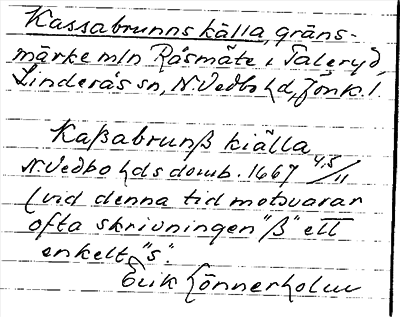 Kassabrunns källa, gräns-
märke mln Råsmäte i Taleryd,
Linderås sn, N. Vedbo hd, Jönk. l.
Kaßabrunß kiälla
N. Vedbo hds domb. 1667 4,5/11
(vid denna tid motsvarar
ofta skrivningen "ß" ett
enkelt "s".
Erik Lönnerholm